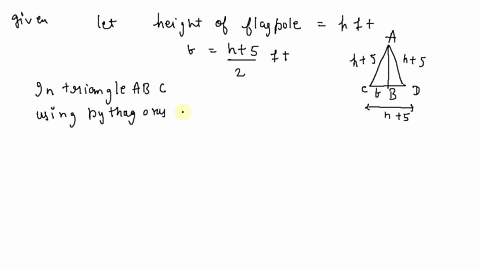 given let height of flagpole = h ft
b = h+5/2 ft
In triangle ABC
using pythagorus
A
h+5 h+5
C b B D
h+5